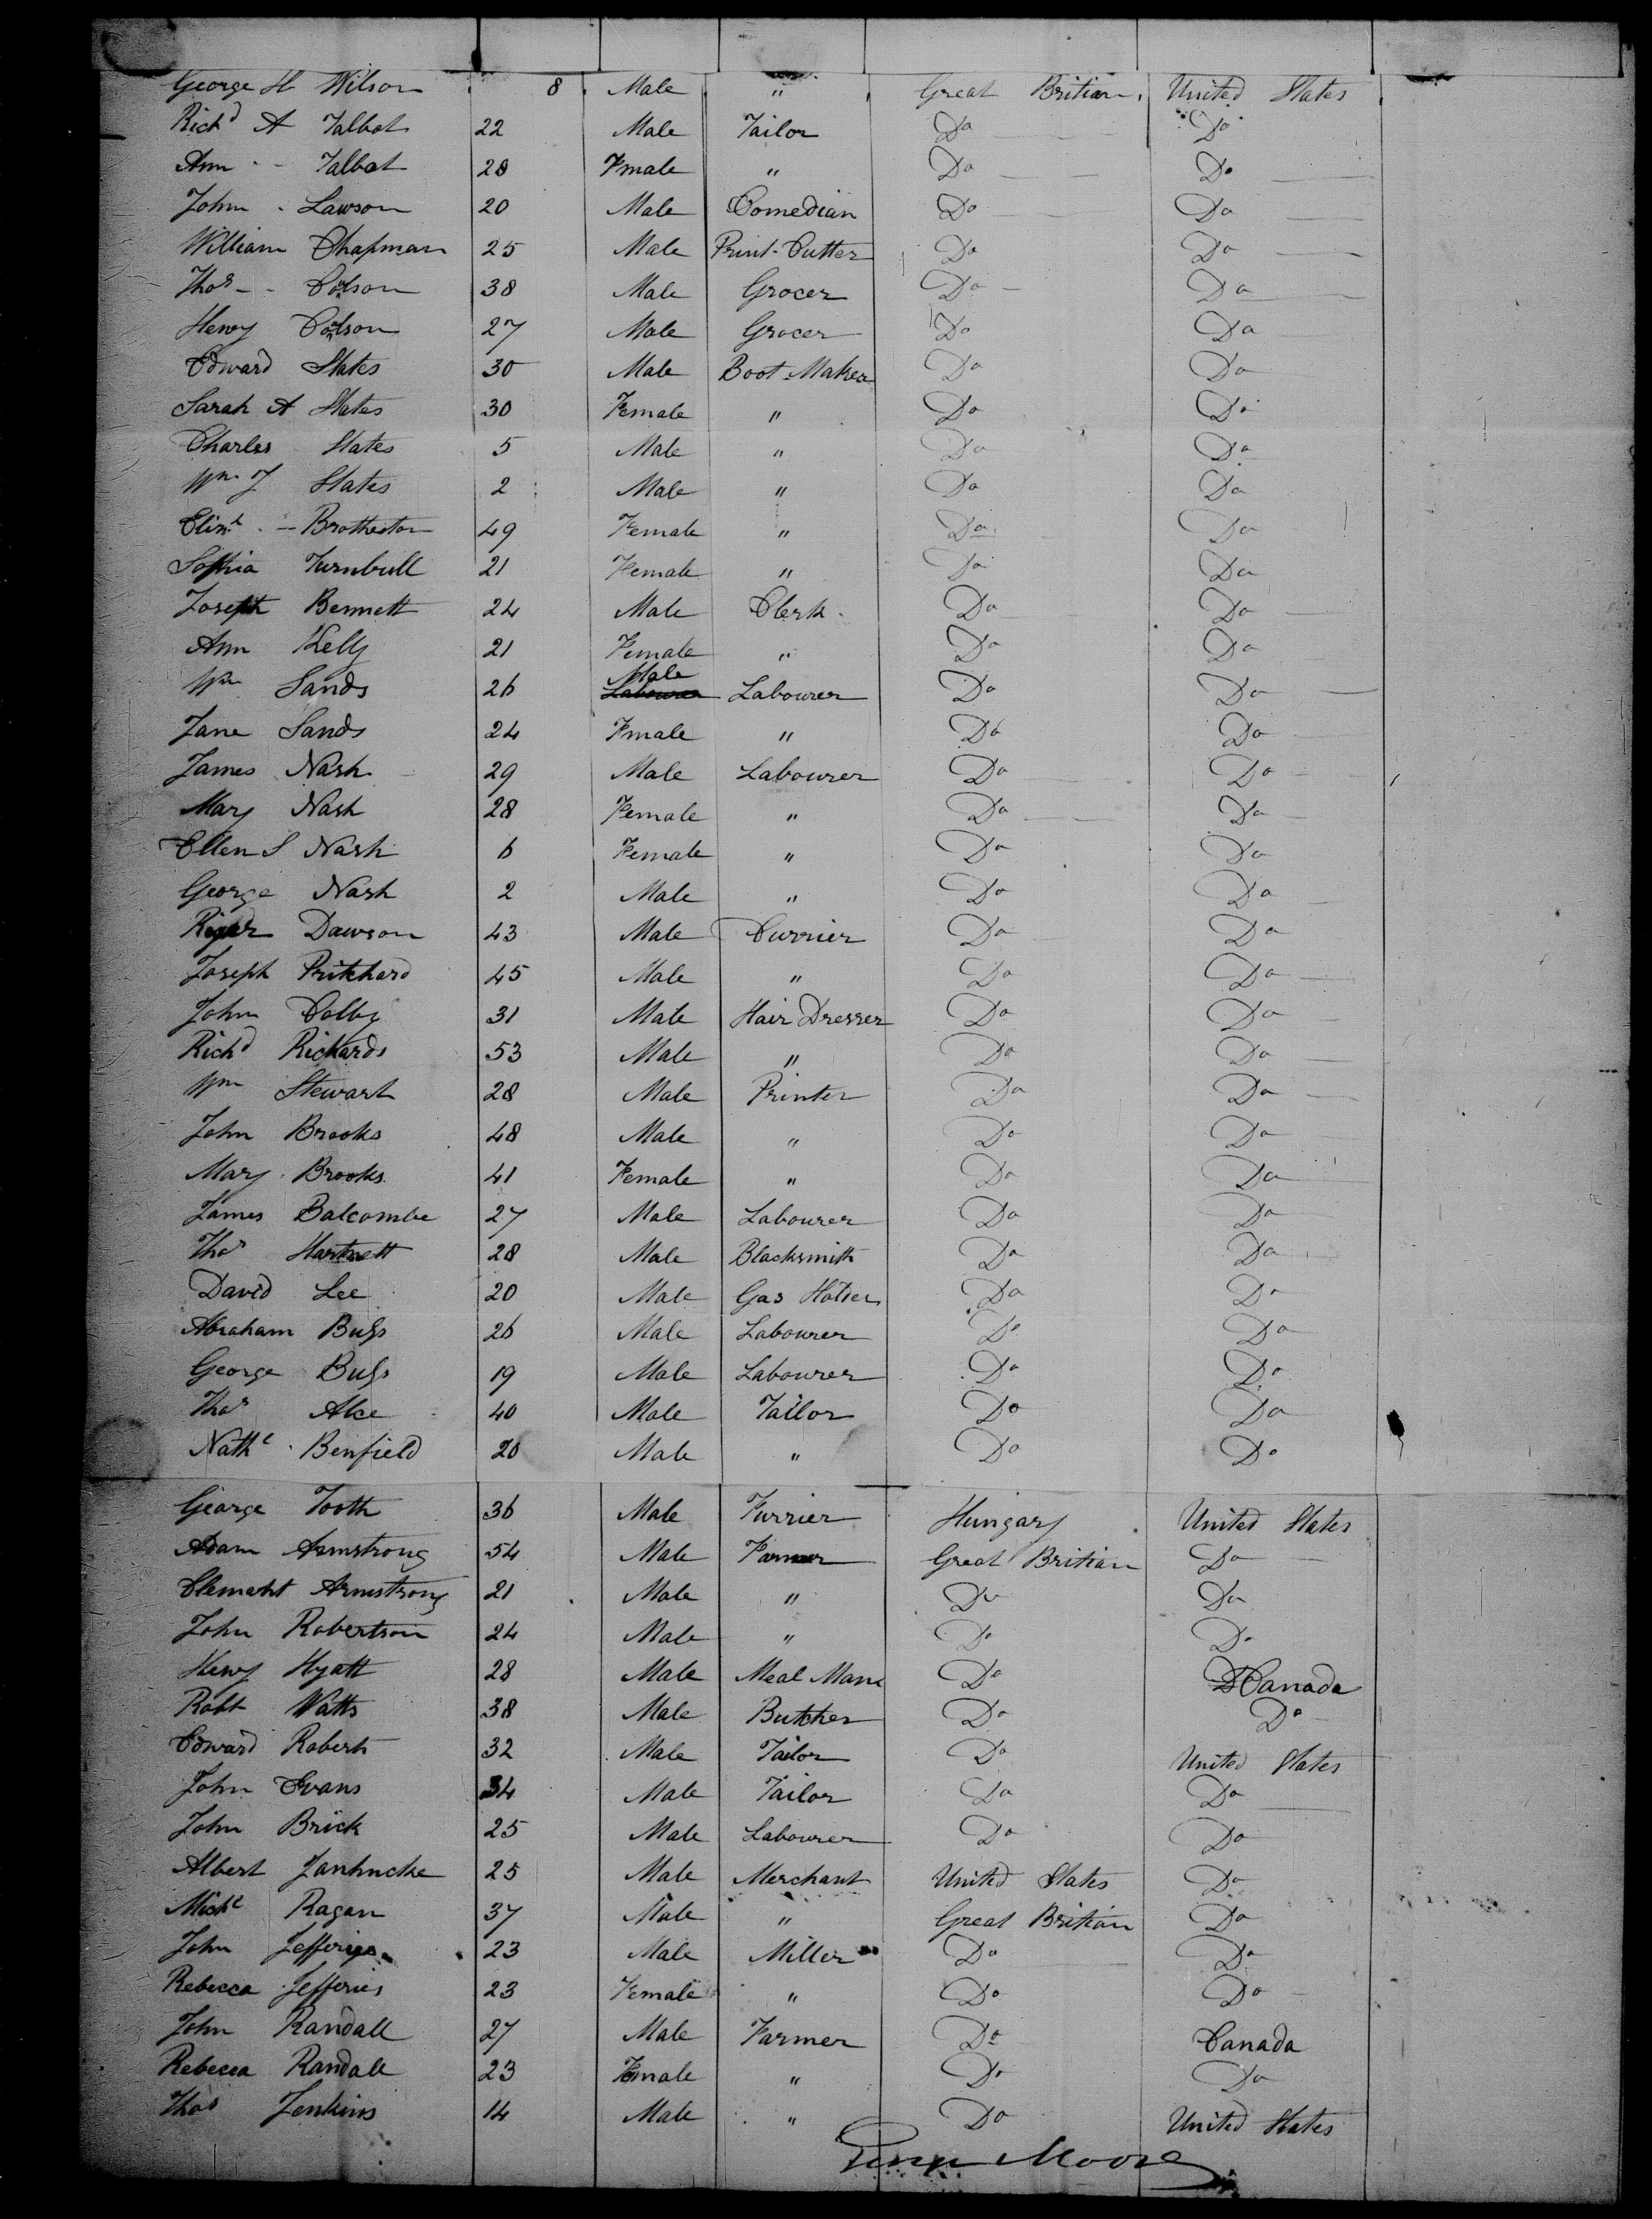 George H Wilson 8 Male " Great Britian United States
Richd A Talbot 22 Male Tailor Do Do
Ann Talbot 28 Fmale " Do Do
John Lawson 20 Male Comedian Do Do
William Chapman 25 Male Print-Cutter Do Do
Thos 38 Male Grocer Do Do
Henry 27 Male Grocer Do Do
Edward States 30 Male Boot-Maker Do Do
Sarah A States 30 Female " Do Do
Charles States 5 Male " Do Do
Wm J States 2 Male " Do Do
Brotherton 49 Female " Do Do
Sophia Turnbull 21 Female " Do Do
Joseph Bennett 24 Male Clerk Do Do
Ann Kelly 21 Female " Do Do
Wm Sands 26 Male Labourer Do Do
Jane Sands 24 Fmale " Do Do
James Nash 29 Male Labourer Do Do
Mary Nash 28 Female " Do Do
Ellen S Nash 6 Female " Do Do
George Nash 2 Male " Do Do
Dawson 43 Male Currier Do Do
Joseph Pritchard 45 Male " Do Do
John Colby 31 Male Hair Dresser Do Do
Richd Richards 53 Male " Do Do
Wm Stewart 28 Male Printer Do Do
John Brooks 48 Male " Do Do
Mary Brooks 41 Female " Do Do
James Balcombe 27 Male Labourer Do Do
Thos Hartnett 28 Male Blacksmith Do Do
David Lee 20 Male Gas Do Do
Abraham 26 Male Labourer Do Do
George 19 Male Labourer Do Do
Thos 40 Male Tailor Do Do
Nathl Benfield 20 Male " Do Do
George Tooth 36 Male Furrier Hungary United States
Adam Armstrong 54 Male Farmer Great Britian Do
Armstrong 21 Male " Do Do
John Robertson 24 Male " Do Do
Henry Hyatt 28 Male Meal Man Do Canada
Robt Watts 38 Male Butcher Do Do
Edward Roberts 32 Male Tailor Do United States
John Evans 34 Male Tailor Do Do
John Brick 25 Male Labourer Do Do
Albert 25 Male Merchant United States Do
Michl Ragan 37 Male " Great Britian Do
John Jefferies 23 Male Miller Do Do
Rebecca Jefferies 23 Female " Do Do
John Randall 27 Male Farmer Do Canada
Rebecca Randall 23 Female " Do Do
Thos Jenkins 14 Male " Do United States
Moore